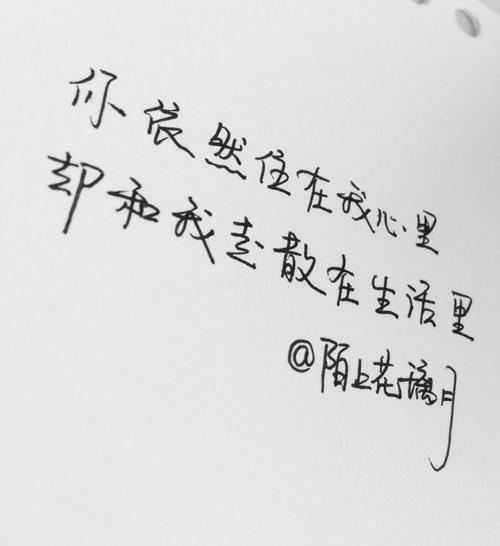 你依然住在我心里
却和我走散在生活里
@陌上花璃月